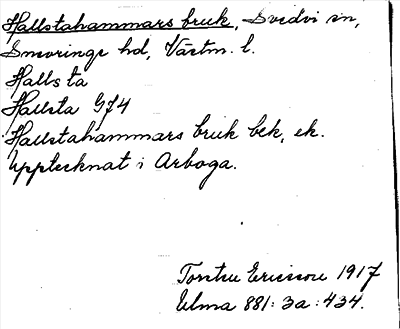 Hallstahammars bruk, Svedvi sn,
Snevringe hd, Västm. l.
Hallsta
Hallsta G74
Hallstahammars bruk bek, ek.
Upptecknat i Arboga.
Torsten Ericsson 1917
Elma 881: 3a: 434.